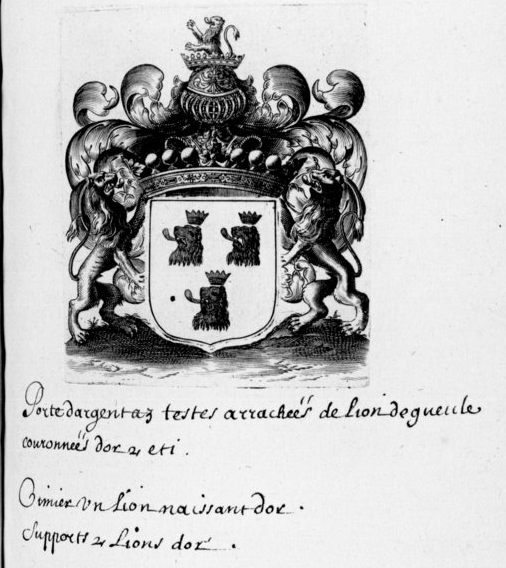 Porte dargent a 3 testes arrachéés de Lion de gueule
couronnéés dor 2 et i.
Cimier vn Lion naissant dor.
Supports 2 Lions dor.